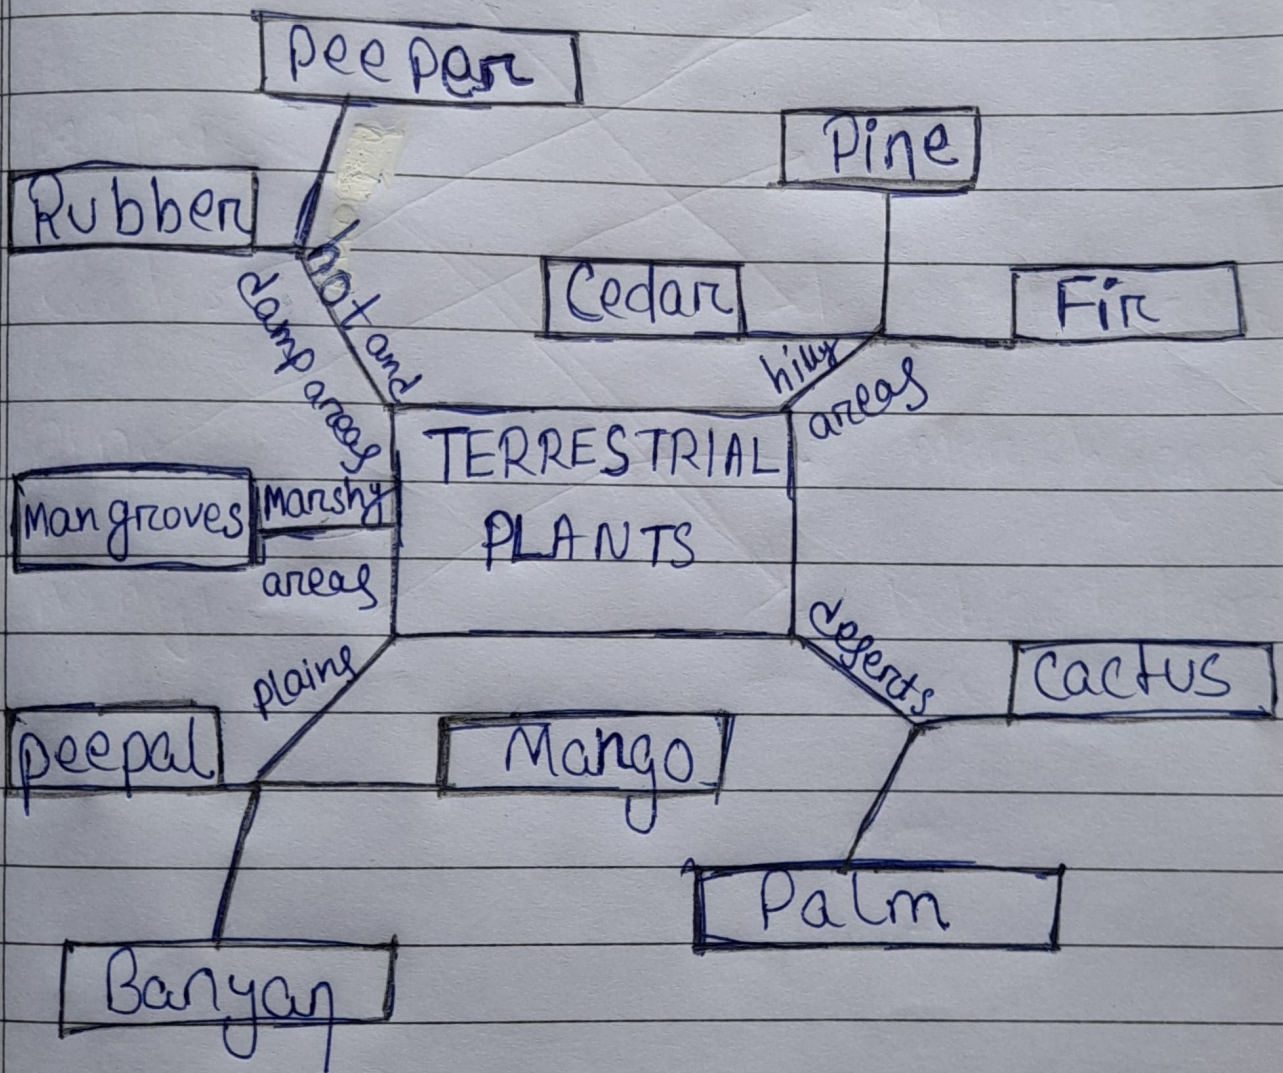 Peepar
Pine
Rubber
Cedar
Fir
hot and
damp areas
hilly
areas
TERRESTRIAL
PLANTS
Mangroves
Marshy
areas
plains
deserts
Cactus
peepal
Mango
Palm
Banyan